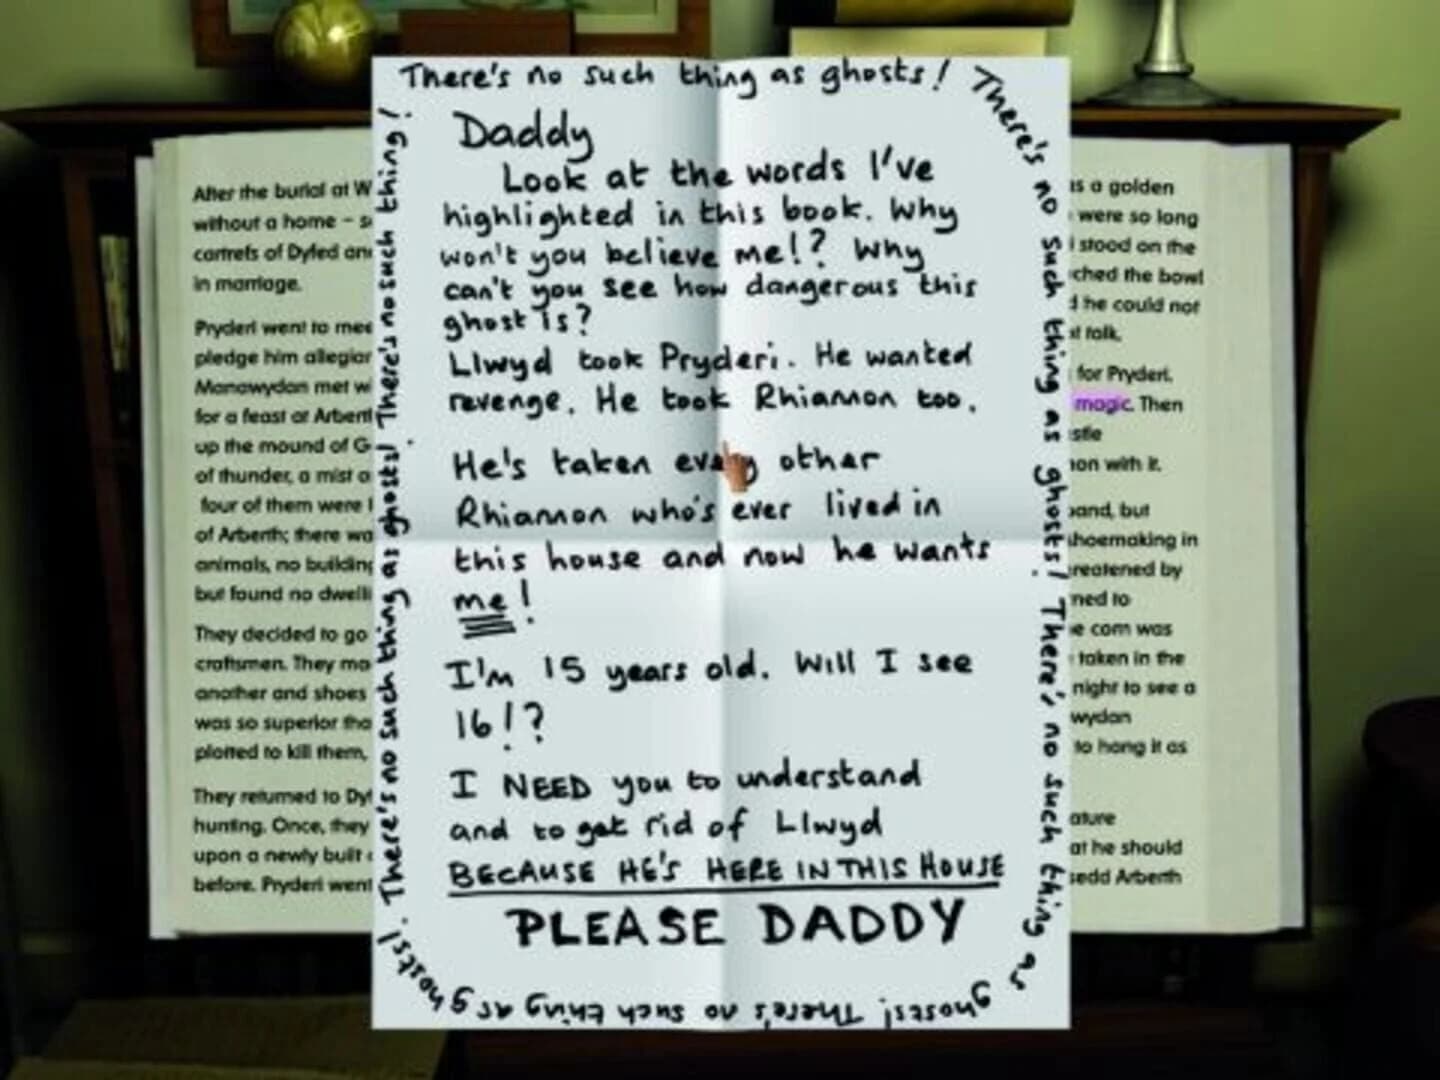 There's no such thing as ghosts! There's no such thing as ghosts! There's no such thing as ghosts! There's no such thing as ghosts! There's no such thing as ghosts! There's no such thing!
Daddy
Look at the words I've
highlighted in this book. Why
won't you believe me!? Why
can't you see how dangerous this
ghost is?
Llwyd took Pryderi. He wanted
revenge. He took Rhiannon too.
He's taken every other
Rhiannon who's ever lived in
this house and now he wants
me!
I'm 15 years old. Will I see
16!?
I NEED you to understand
and to get rid of Llwyd
BECAUSE HE'S HERE IN THIS HOUSE
PLEASE DADDY
After the burial at
without a home –
cantrefs of Dyfed
in marriage.
Pryderi went to
pledge him
Manawydan met
for a feast at
up the mound of
of thunder, a mist
four of them were
of Arberth; there
animals, no
but found no
They decided to go
craftsmen. They
another and shoes
was so superior
plotted to kill them,
They returned to
hunting. Once, they
upon a newly built
before. Pryderi went
a golden
were so long
stood on the
the bowl
he could not
talk.
for Pryderi.
magic. Then
with it.
but
shoemaking in
by
to
corn was
taken in the
night to see a
to hang it as
he should
Arberth